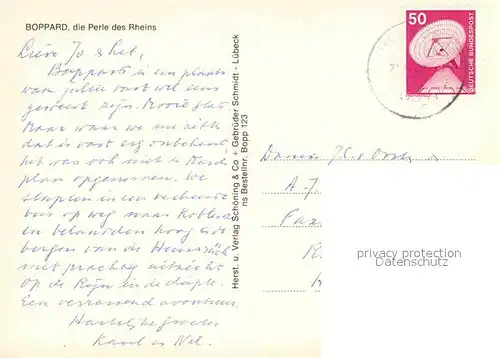 BOPPARD, die Perle des Rheins
Lieve Jo & Net,
Boppard is een plaats
waar jullie vast wel eens
geweest zijn. Mooie stad
Maar waar we nu zitten
dat is vast erg onbekend
het was ook niet in
plan opgenomen. We
stapten in een verkeerde
bus op weg naar Koblenz
en belandden hoog in de
bergen van de Hunsrück
met prachtig uitzicht
op de Rijn in de diepte.
Een verrassend avontuur.
Hartelijke groeten
Karel en Nel.
Herst. u. Verlag Schöning & Co + Gebrüder Schmidt - Lübeck
ns Bestellnr. Bopp 123
50
DEUTSCHE BUNDESPOST
A.J.
privacy protection
Datenschutz